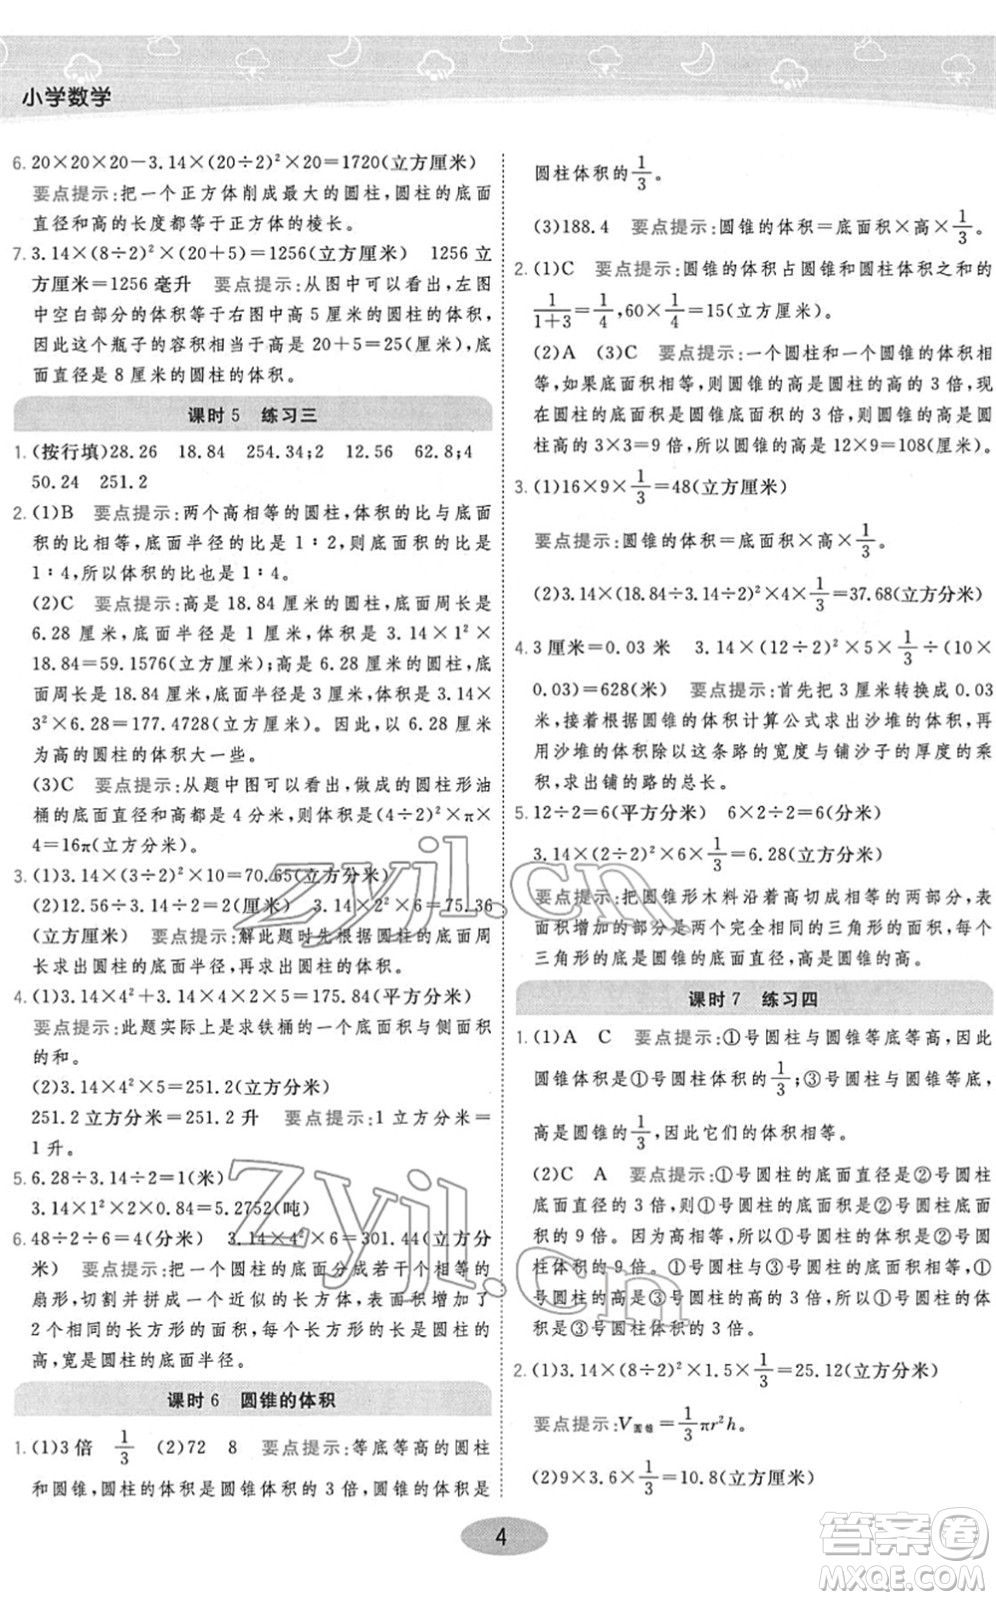 小学数学
6. 20×20×20-3.14×(20÷2)²×20=1720(立方厘米)
要点提示:把一个正方体削成最大的圆柱,圆柱的底面
直径和高的长度都等于正方体的棱长。
7. 3.14×(8÷2)²×(20+5)=1256(立方厘米) 1256 立
方厘米=1256 毫升 要点提示:从图中可以看出,左图
中空白部分的体积等于右图中高 5 厘米的圆柱的体积,
因此这个瓶子的容积相当于高是 20+5=25(厘米),底
面直径是 8 厘米的圆柱的体积。
课时 5 练习三
1. (按行填)28.26 18.84 254.34;2 12.56 62.8;4
50.24 251.2
2. (1)B 要点提示:两个高相等的圆柱,体积的比与底面
积的比相等,底面半径的比是 1∶2,则底面积的比是
1∶4,所以体积的比也是 1∶4。
(2)C 要点提示:高是 18.84 厘米的圆柱,底面周长是
6.28 厘米,底面半径是 1 厘米,体积是 3.14×1²×
18.84=59.1576(立方厘米);高是 6.28 厘米的圆柱,底
面周长是 18.84 厘米,底面半径是 3 厘米,体积是 3.14×
3²×6.28=177.4728(立方厘米)。因此,以 6.28 厘米
为高的圆柱的体积大一些。
(3)C 要点提示:从题中图可以看出,做成的圆柱形油
桶的底面直径和高都是 4 分米,则体积是(4÷2)²×π×
4=16π(立方分米)。
3. (1)3.14×(3÷2)²×10=70.65(立方分米)
(2)12.56÷3.14÷2=2(厘米) 3.14×2²×6=75.36
(立方厘米) 要点提示:解此题时先根据圆柱的底面周
长求出圆柱的底面半径,再求出圆柱的体积。
4. (1)3.14×4²+3.14×4×2×5=175.84(平方分米)
要点提示:此题实际上是求铁桶的一个底面积与侧面积
的和。
(2)3.14×4²×5=251.2(立方分米)
251.2 立方分米=251.2 升 要点提示:1 立方分米=
1 升。
5. 6.28÷3.14÷2=1(米)
3.14×1²×2×0.84=5.2752(吨)
6. 48÷2÷6=4(分米) 3.14×4²×6=301.44(立方分
米) 要点提示:把一个圆柱的底面分成若干个相等的
扇形,切割并拼成一个近似的长方体,表面积增加了
2 个相同的长方形的面积,每个长方形的长是圆柱的
高,宽是圆柱的底面半径。
课时 6 圆锥的体积
1. (1)3 倍 1/3 (2)72 8 要点提示:等底等高的圆柱
和圆锥,圆柱的体积是圆锥体积的 3 倍,圆锥的体积是
圆柱体积的1/3。
(3)188.4 要点提示:圆锥的体积=底面积×高×1/3。
2. (1)C 要点提示:圆锥的体积占圆锥和圆柱体积之和的
1/(1+3)=1/4,60×1/4=15(立方厘米)。
(2)A (3)C 要点提示:一个圆柱和一个圆锥的体积相
等,如果底面积相等,则圆锥的高是圆柱的高的 3 倍,现
在圆柱底面积是圆锥底面积的 3 倍,则圆锥的高是圆
柱高的 3×3=9 倍,所以圆锥的高是 12×9=108(厘米)。
3. (1)16×9×1/3=48(立方厘米)
要点提示:圆锥的体积=底面积×高×1/3。
(2)3.14×(18.84÷3.14÷2)²×4×1/3=37.68(立方分米)
4. 3 厘米=0.03 米 3.14×(12÷2)²×5×1/3÷(10×
0.03)=628(米) 要点提示:首先把 3 厘米转换成 0.03
米,接着根据圆锥的体积计算公式求出沙堆的体积,再
用沙堆的体积除以这条路的宽度与铺沙子的厚度的乘
积,求出铺的路的总长。
5. 12÷2=6(平方分米) 6×2÷2=6(分米)
3.14×(2÷2)²×6×1/3=6.28(立方分米)
要点提示:把圆锥形木料沿着高切成相等的两部分,表
面积增加的部分是两个完全相同的三角形的面积,每个
三角形的底是圆锥的底面直径,三角形的高是圆锥的高。
课时 7 练习四
1. (1)A C 要点提示:①号圆柱与圆锥等底等高,因此
圆锥体积是①号圆柱体积的1/3;③号圆柱与圆锥等底,
高是圆锥的1/3,因此它们的体积相等。
(2)C A 要点提示:①号圆柱的底面直径是②号圆柱
底面直径的 3 倍,则①号圆柱的底面积是②号圆柱底面
积的 9 倍。因为高相等,所以①号圆柱的体积是②号圆
柱体积的 9 倍。①号圆柱与③号圆柱底面积相等,①
号圆柱的高是③号圆柱高的 3 倍,所以①号圆柱的体
积是③号圆柱体积的 3 倍。
2. (1)3.14×(8÷2)²×1.5×1/3=25.12(立方分米)
要点提示:V圆锥=1/3πr²h。
(2)9×3.6×1/3=10.8(立方厘米)
4
zyjl.cn
zyjl.cn
答案圈
MXQE.COM